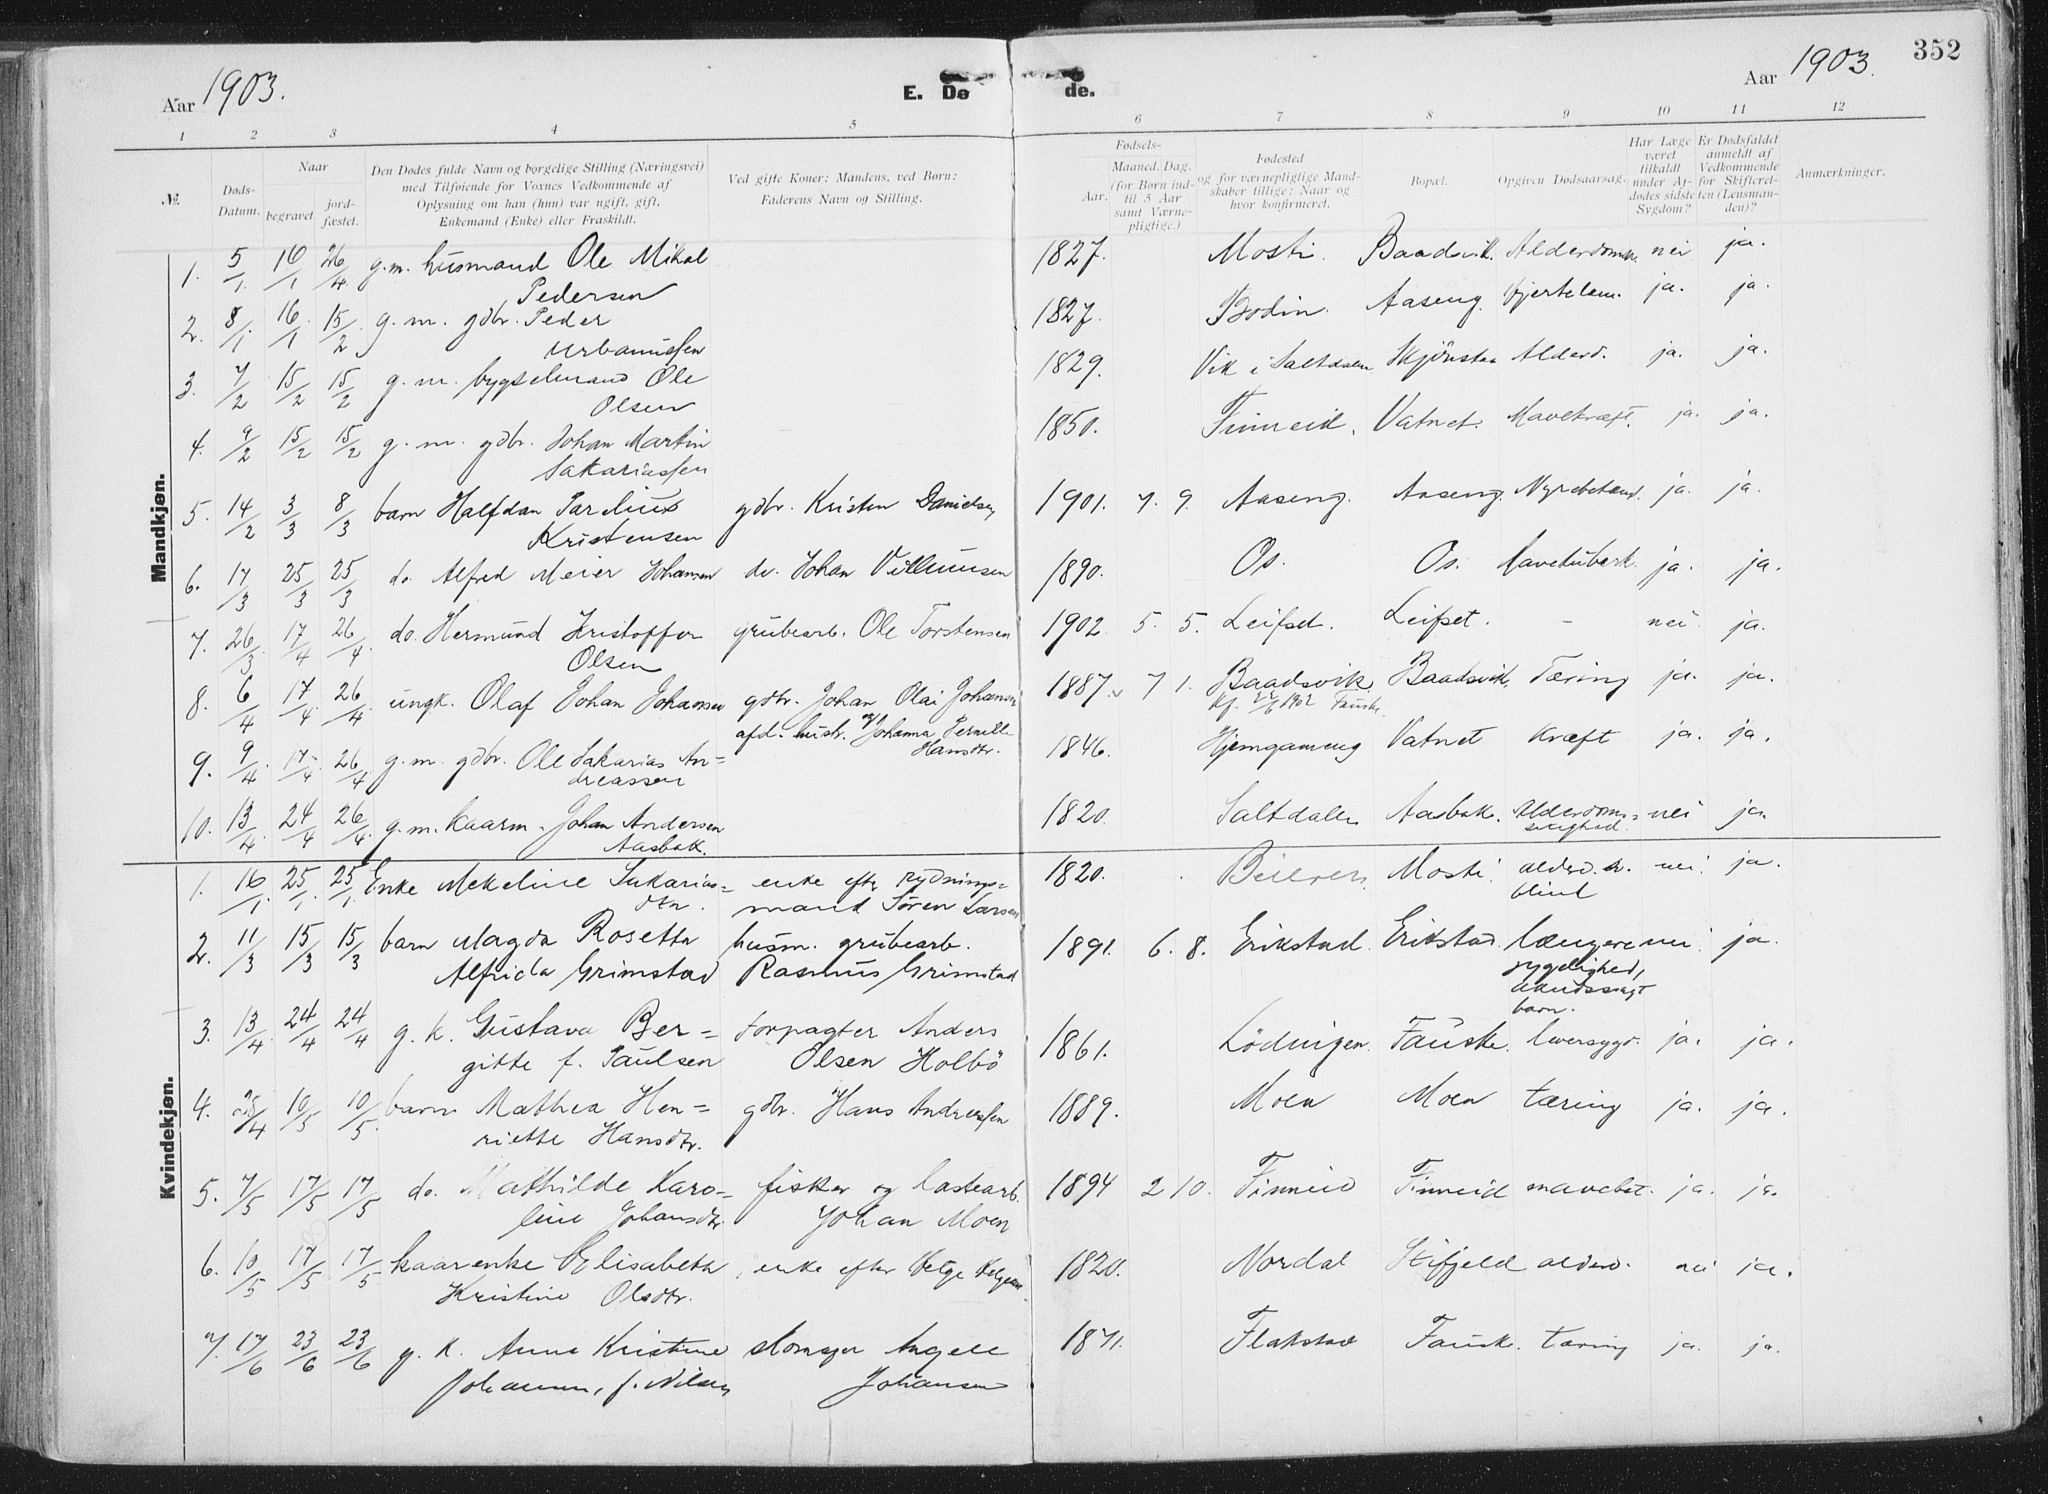 Aar 1903. E. Dø de. Aar 1903. 352
1 2 3 4 5 6 7 8 9 10 11 12
№. Døds-Datum. Naar begravet. jordfæstet. Den Dødes fulde Navn og borgelige Stilling (Næringsvei) med Tilføiende for Voxnes Vedkommende af Oplysning om han (hun) var ugift, gift, Enkemand (Enke) eller Fraskildt. Ved gifte Koner: Mandens, ved Børn: Faderens Navn og Stilling. Fødsels- Aar. Maaned. Dag. (for Børn indtil 5 Aar samt Værnepligtige.) Fødested og for værnepligtige Mandskaber tillige: Naar og hvor konfirmeret. Bopæl. Opgiven Dødsaarsag. Har Læge været tilkaldt under Afdødes sidste Sygdom? Er Dødsfaldet anmeldt af Vedkommende for Skifteretten (Lensmanden)? Anmærkninger.
Mandkjøn.
1. 5/1. 16/1 26/4 g.m. husmand Ole Mikal 1827. Mosti. Baadsvik. nei ja.
Pedersen
2. 8/1. 16/1 15/2 g. m. gdbr. Peder 1827. Bodin. Aaseng. Hjertelam. ja. ja.
Urbanussen
3. 7/2 15/2 15/2 g. m. bygselmand Ole 1829. Vik i Saltdalen Alderd. ja. ja.
Olsen
4. 9/2 15/2 15/2 g. m. gdbr. Johan Martin 1850. Finneid. Vatnet. Mavekræft. ja. ja.
Sakariassen
5. 14/2 3/3 8/3 barn Halfdan Parelius gdbr. Kristen Danielsen 1901. 7. 9. Aaseng. Aaseng. ja. ja.
Kristensen
6. 17/3 25/3 25/3 do. Alfred Meier Johansen do. Johan Villumsen 1890. Os. Os. Mavetuberk. ja. ja.
7. 26/3 17/4 26/4. do. Hermund Kristoffer grubearb. Ole Torstensen 1902. 5. 5. Leifset. Leifset. - nei. ja.
Olsen
8. 6/4 17/4. 26/4. ungk. Olaf Johan Johansen gdbr. Johan Olai Johansen 1887. 7 1. Baadsvik. Baadsvik. Tæring ja. ja.
afd. hustr. Johanna Pernille Kf. 1902 Fauske.
Hansdtr.
9. 9/4. 17/4. 26/4 g. m. gdbr. Ole Sakarias An= 1846. Vatnet Kræft ja. ja.
dreassen
10. 13/4. 24/4 26/4. g.m. kaarm. Johan Andersen 1820. Saltdalen Aasbak. Alderdoms= nei ja.
Aasbak. svaghed.
Kvindekjøn.
1. 16/1. 25/1. 25/1. Enke Mekeline Sakarias= enke efter rydnings= 1820. Beieren. Mosti. alderd. nei. ja.
dtr. mand Søren Larsen blind
2. 11/3 15/3 15/3 barn Magda Rosetta husm. grubearb. 1891. 6. 8. Erikstad. Erikstad. længere nei. ja.
Alfrida Grimstad Rasmus Grimstad sygelighed,
aandssvagt
barn.
3. 13/4. 24/4 24/4 g. k. Gustava Ber= forpagter Anders 1861. Lödingen. Fauske. leversygd. ja. ja.
gitte f. Paulsen Olsen Holbö
4. 28/4 10/5 10/5. barn Mathea Hen= gdbr. Hans Andreassen 1889. Moen Moen tæring ja. ja.
riette Hansdtr.
5. 7/5 17/5 17/5 do. Mathilde Karo= fisker og lastearb. 1894 2 10. Finneid Finneid mavebet. ja. ja.
line Johansdtr. Johan Moen
6. 10/5 17/5 17/5 kaarenke Elisabeth enke efter Helge Helgesen. 1820. Nordal Stifjeld alderd. nei ja.
Kristine Olsdtr.
7. 17/6 23/6 23/6 g. k. Anne Kristine slomager Angell 1871. Flakstad Fauske. tæring ja. ja.
Johansen, f. Nilsen Johansen